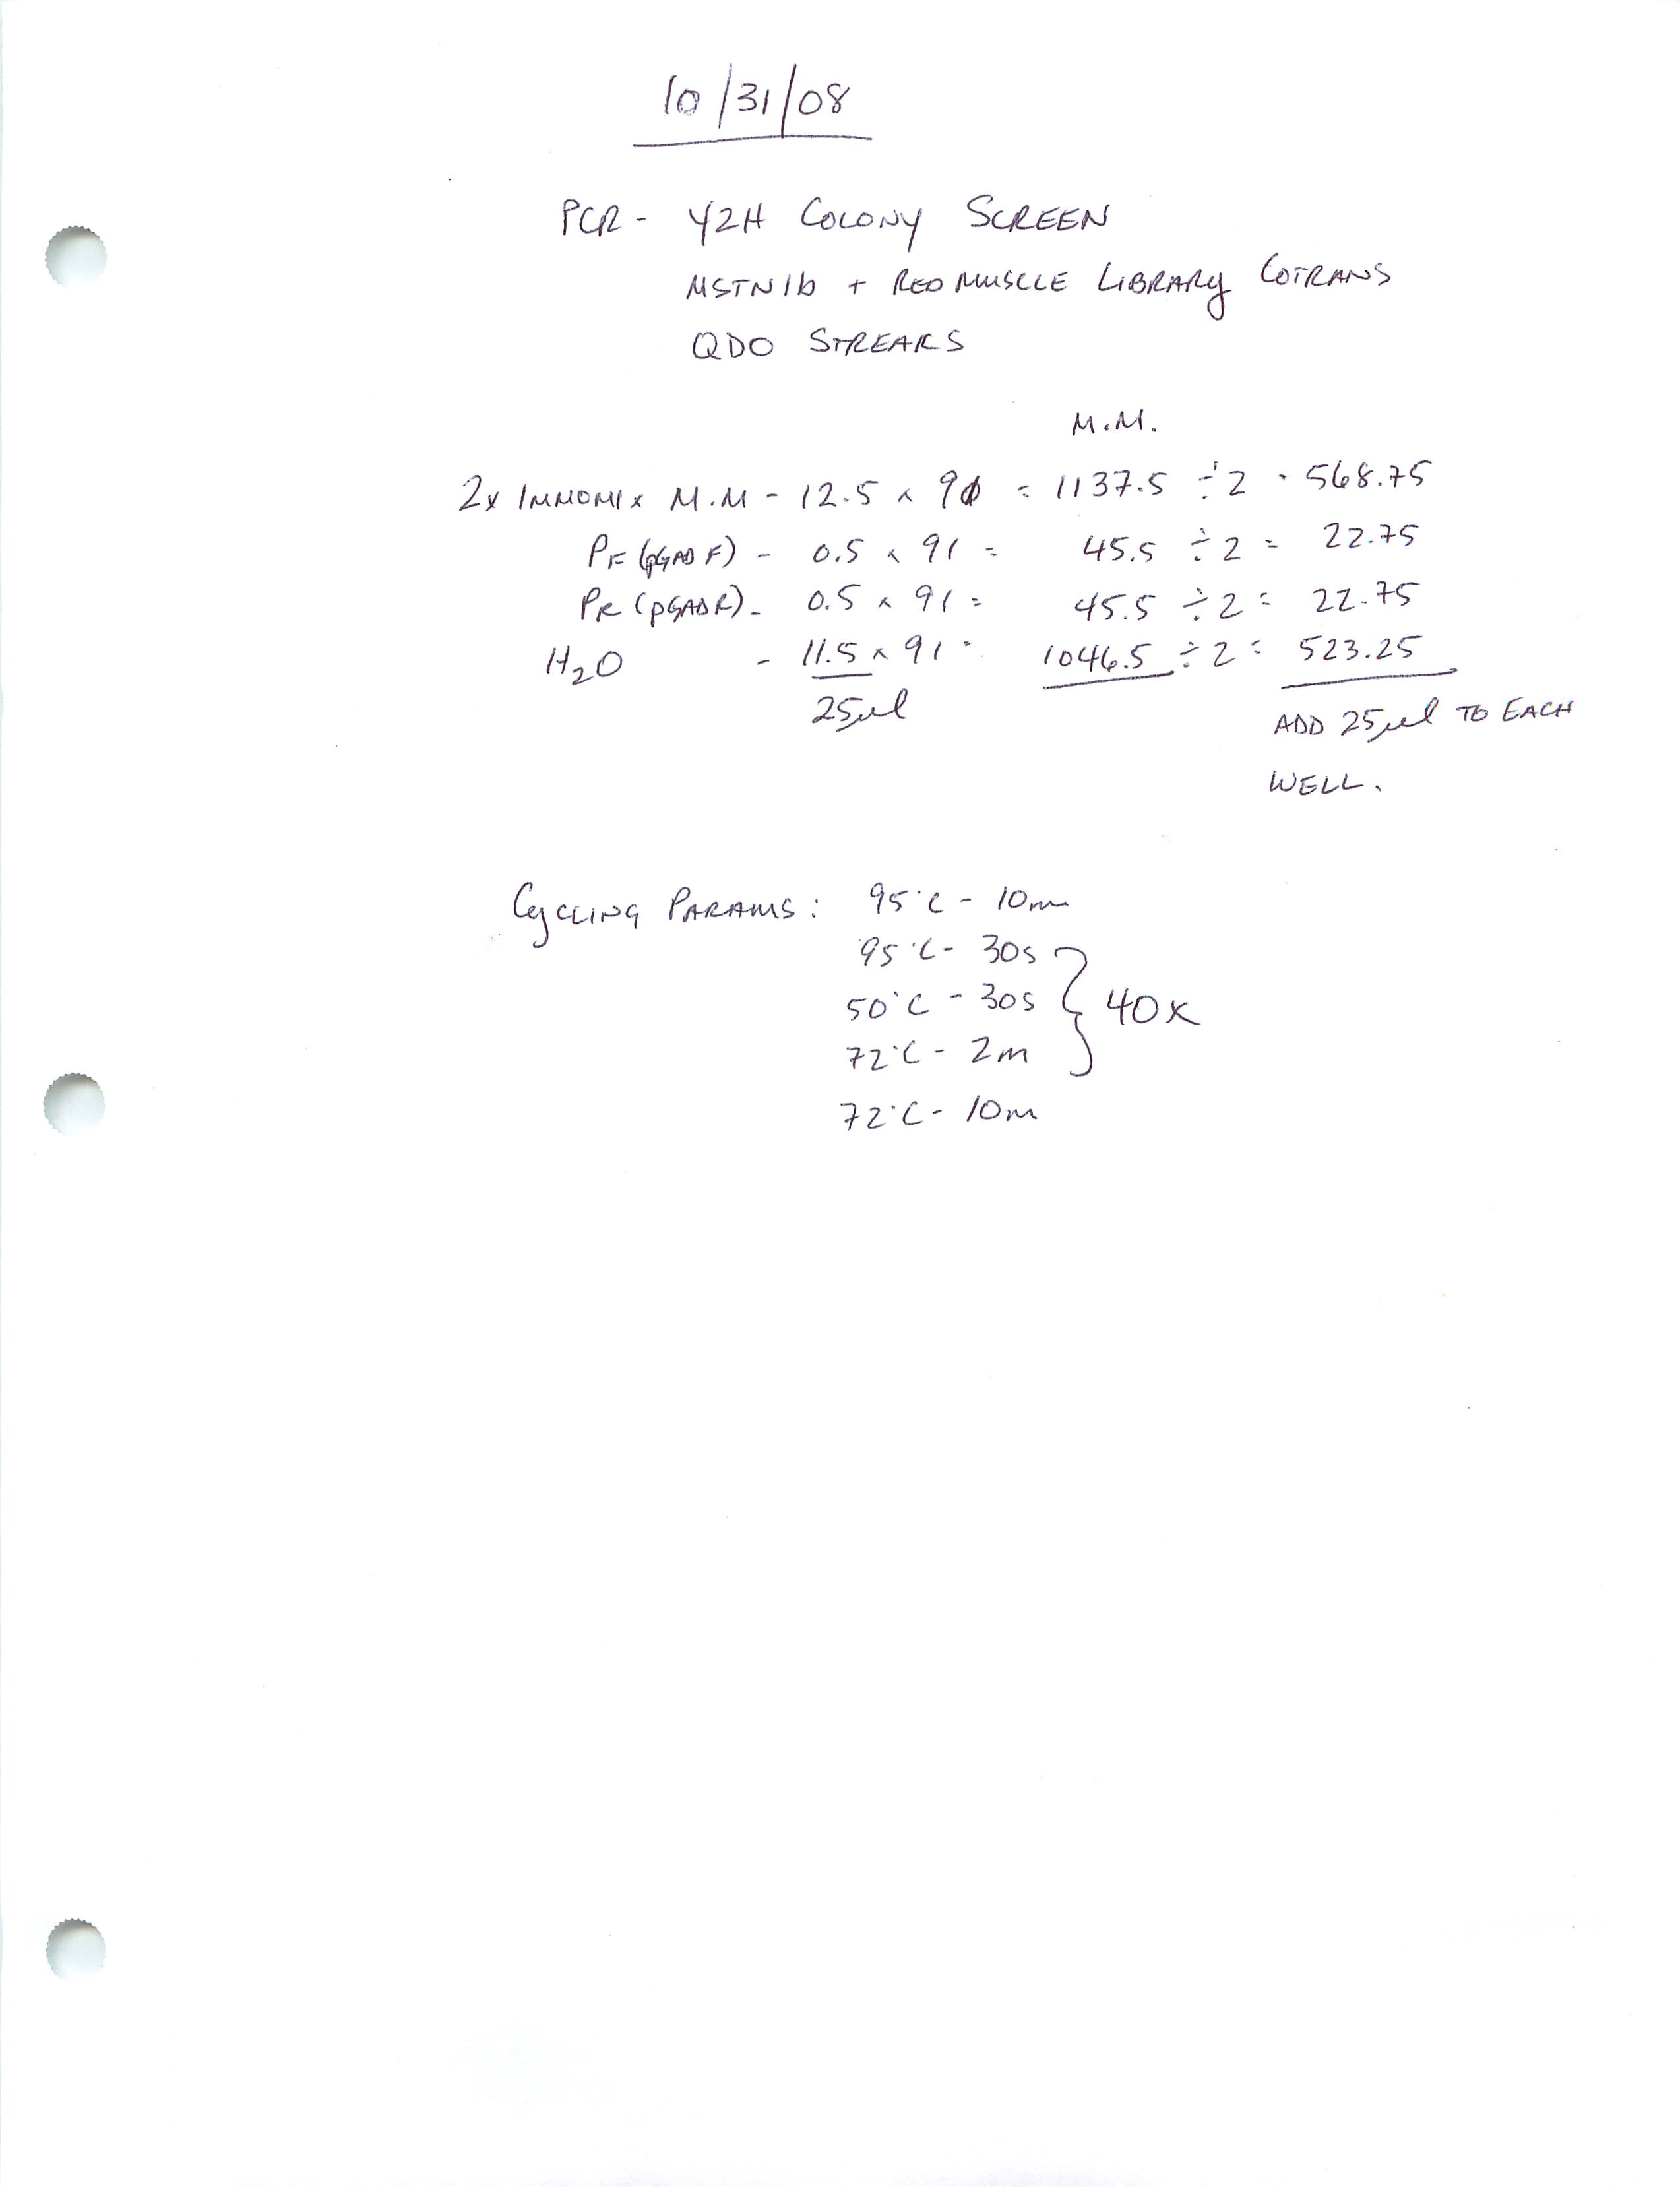 10/31/08
PCR - Y2H COLONY SCREEN
MSTN1b + RED MUSCLE LIBRARY COTRANS
QDO STREAKS
M.M.
2x IMMOMIX M.M - 12.5 x 91 = 1137.5 ÷ 2 = 568.75
PF (pGAD F) - 0.5 x 91 = 45.5 ÷ 2 = 22.75
PR (pGADR) - 0.5 x 91 = 45.5 ÷ 2 = 22.75
H2O - 11.5 x 91 = 1046.5 ÷ 2 = 523.25
25µl
ADD 25µl TO EACH
WELL.
CYCLING PARAMS: 95°C - 10m
95°C - 30s
50°C - 30s } 40x
72°C - 2m
72°C - 10m